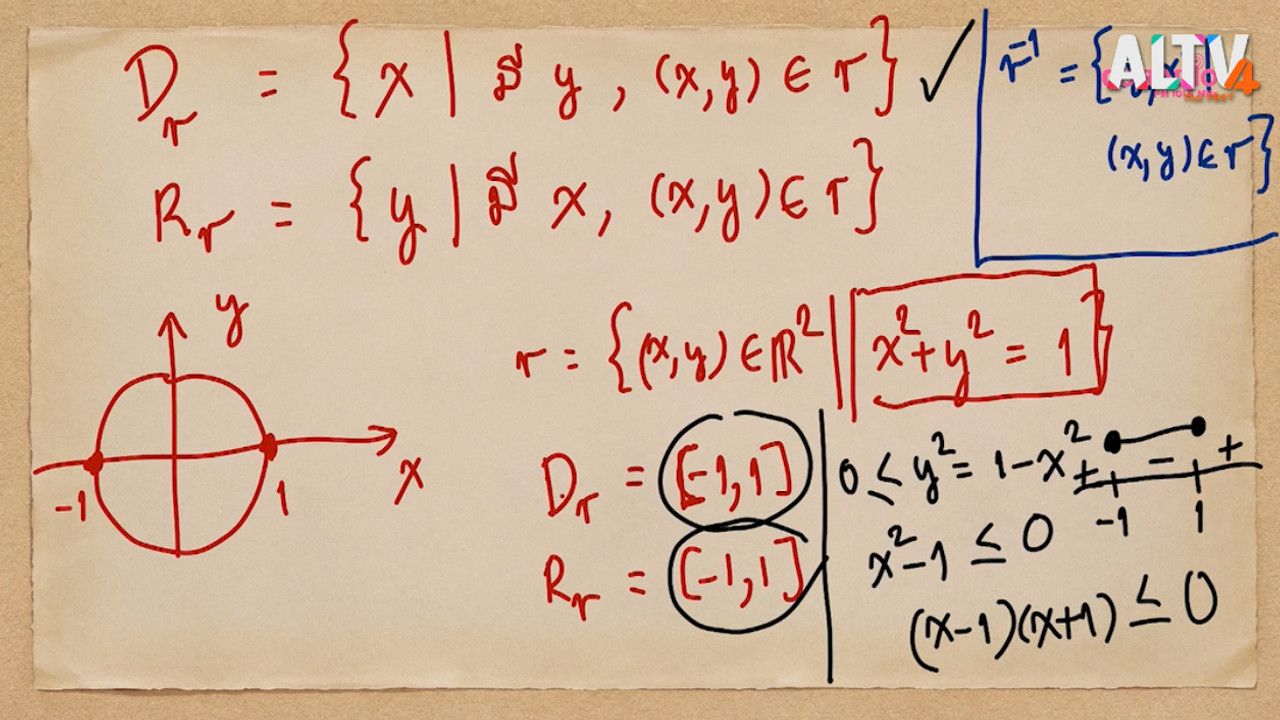 D_r = { x | มี y , (x,y) ∈ r } ✓
R_r = { y | มี x, (x,y) ∈ r }
r⁻¹ = {
(x,y) ∈ r }
ALTV 4
y
x
-1
1
r = { (x,y) ∈ ℝ² | x² + y² = 1 }
D_r = [-1,1]
R_r = [-1,1]
0 ≤ y² = 1 - x²
+ - +
-1 1
x² - 1 ≤ 0
(x-1)(x+1) ≤ 0